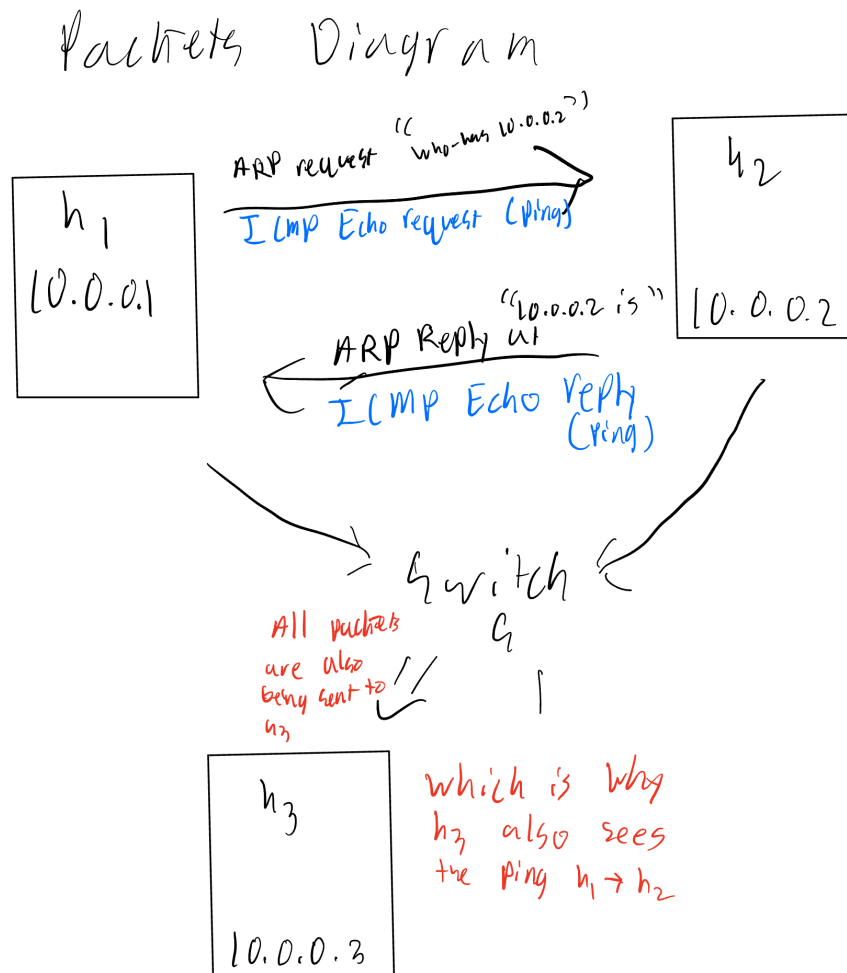 Packets Diagram
ARP request "who-has 10.0.0.2"
ICMP Echo request (ping)
h1
10.0.0.1
h2
10.0.0.2
"10.0.0.2 is"
ARP Reply at
ICMP Echo reply
(ping)
Switch
S
All packets
are also
being sent to
h3
h3
10.0.0.3
which is why
h3 also sees
the ping h1 → h2